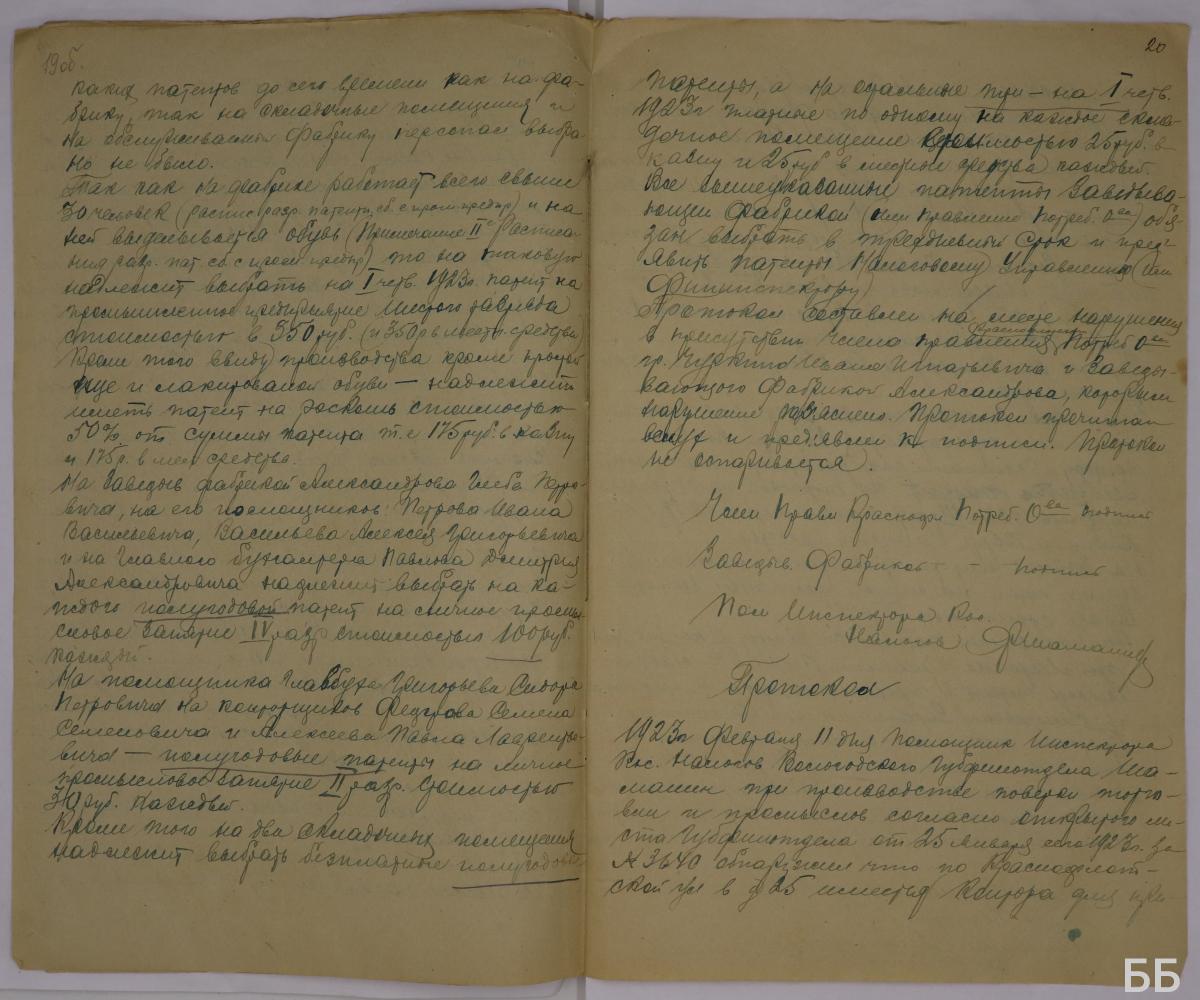 19 об.
каких патентов до сего времени как на фа-
брику, так на складочные помещения и
на обслуживающий фабрику персонал выбра-
но не было.
Так как на фабрике работает всего свыше
30 человек (распис. разр. патента, сб. с пром. предпр) и на
ней выделывается обувь (Примечание II Расписа-
ния разр. пат. сб. с пром. предпр) то на таковую
надлежит выбрать на I четв. 1923г. патент на
промышленное предприятие шестого разряда
стоимостью в 350 руб. (и 350 р в местн. средства
Кроме того ввиду производства кроме простой
еще и лакированой обуви — надлежит
иметь патент на роскошь стоимостью
50% от суммы патента т.е. 175 руб. в казну
и 175 р. в мест средства.
На Заведыв фабрикой Александрова Глеба Петро-
вича, на его помощников: Петрова Ивана
Васильевича, Васильева Алексея Григорьевича
и на Главного бухгалтера Павлова Дмитрия
Александровича надлежит выбрать на ка-
ждого полугодовой патент на личное промы-
словое занятие IV разр стоимостью 100 руб.
каждый.
На помощника Главбуха Григорьева Сидора
Петровича на конторщиков Федорова Семена
Семеновича и Алексеева Павла Лаврентье-
вича — полугодовые патенты на личное
промысловое занятие II разр. стоимостью
руб. каждый.
Кроме того на два складочных помещения
надлежит выбрать безплатные полугодовые
20
патенты, а на остальные три — на I четв.
1923г платные по одному на каждое скла-
дочное помещение стоимостью 25 руб. в
казну и 25 руб в местные средства каждый.
Все вышеуказанные патенты Заведыва-
ющий Фабрикой (или Правление Потреб. О-ва) обя-
зан выбрать в трехдневный срок и пред-
явить патенты Налоговому Управлению (или
Фининспектору)
Протокол составлен на месте нарушения
в присутствии Члена правления Краснофлотск Потреб О-ва
гр. Чуркина Ивана Игнатьевича и Заведы-
вающего Фабрикой Александрова, которым
нарушение разъяснено. Протокол прочитан
вслух и предъявлен к подписи. Протокол
не оспаривается.
Член Правл Краснофл Потреб. О-ва подпись
Заведыв. Фабрикой — подпись
Пом Инспектора Кос.
Налогов
Протокол
1923г Февраля 11 дня Помощник Инспектора
Кос. Налогов Вологодского Губфинотдела Ша-
машин при производстве поверки торго-
вли и промыслов согласно открытого ли-
ста Губфинотдела от 25 Января с/г 1923г. за
№ 3640 обнаружил что по Краснофлот-
ской ул в д 25 имеется контора для
ББ